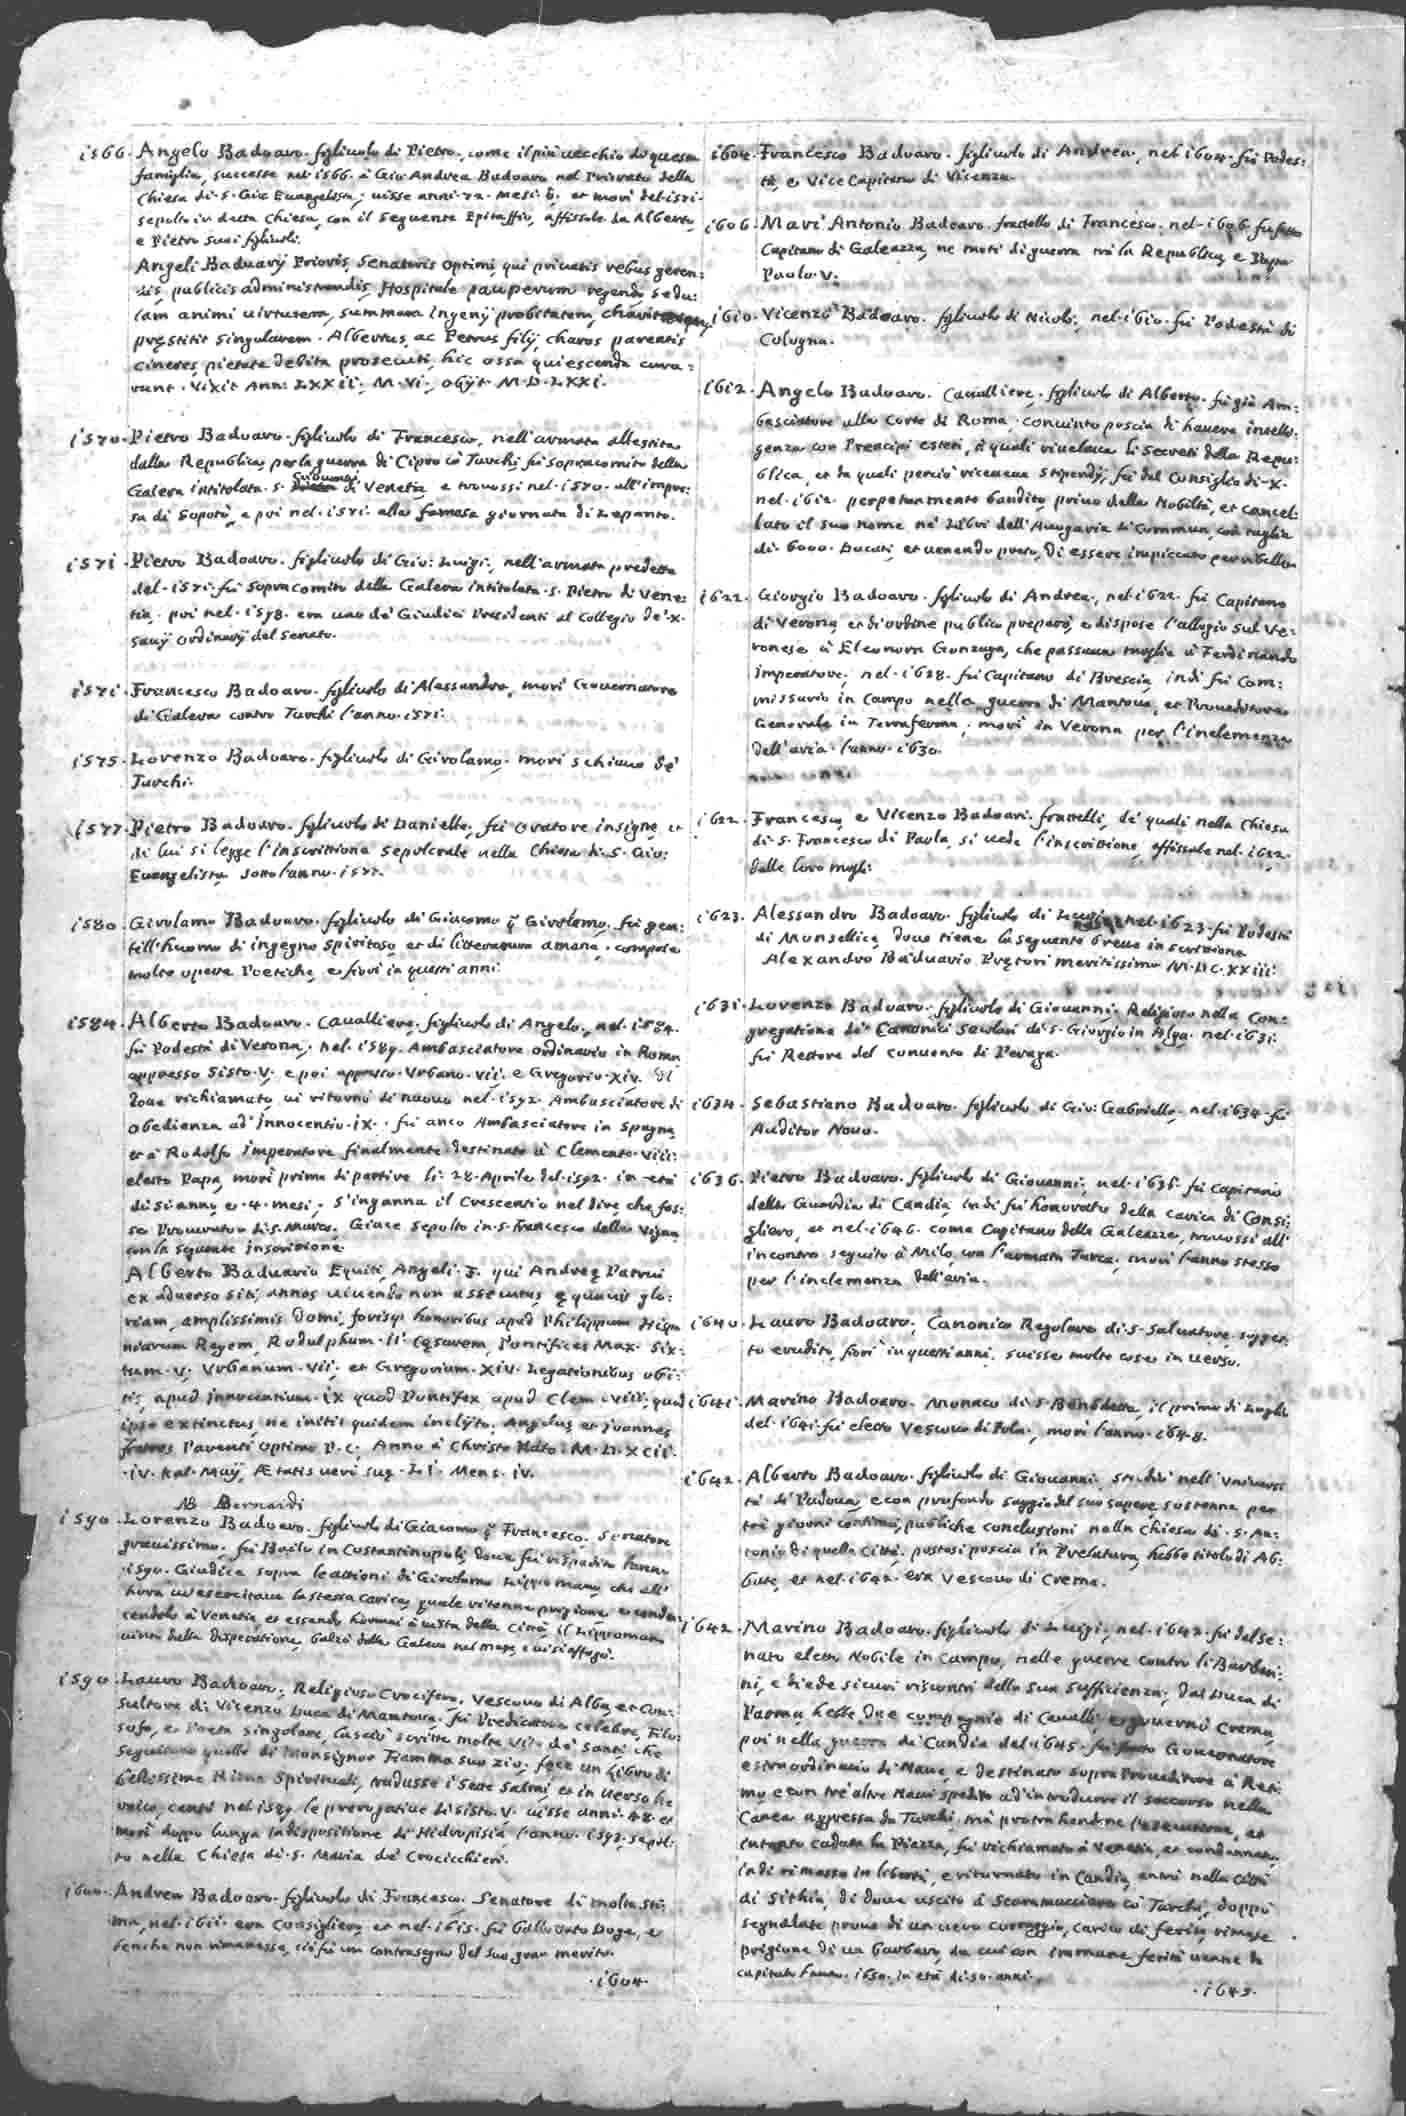 i566. Angelo Badoaro. figliuolo di Pietro, come il più uecchio di questa
famiglia, successe nel i566. à Gio: Andrea Badoaro nel Priorato della
Chiesa di. S. Gio: Euangelista, uisse anni. 72. mesi. 6. et morì del. i57i.
sepolto in detta Chiesa, con il seguente Epitaffio, affissole da Alberto,
e Pietro suoi figliuoli.
Angeli Baduarij Prioris, Senatoris optimi, qui priuatis rebus geren:
dis, publicis administrandis, Hospitale pauperum regendo, sedu:
lam animi uirtutem, summam ingenij probitatem,
pręstitit singularem. Albertus, ac Petrus filij charos parentis
cineres, pietate debita prosecuti, hic ossa quiescenda cura:
runt. Vixit Ann: LXXii. M. Vi. obijt M.D.LXXi.
i570. Pietro Badoaro. figliuolo di Francesco, nell'armata allestita
dalla Republica per la guerra di Cipro cò Turchi fù sopracomito della
Galera intitolata. S. Giouanni di Venetia e trouossi nel. i570. all'impre:
sa di Sopotò, e poi nel. i57i. alla famosa giornata di Lepanto.
i57i. Pietro Badoaro. figliuolo di Gio: Luigi, nell'armata predetta
del. i57i. fù Sopracomito della Galera intitolata. S. Pietro di Vene:
tia. poi nel. i578. era uno dè Giudici Presidenti al Collegio dè. X.
Sauij ordinarij del Senato.
i57i. Francesco Badoaro. figliuolo di Alessandro, morì Gouernatore
di Galera contro Turchi l'anno. i57i.
i575. Lorenzo Badoaro. figliuolo di Girolamo. morì schiauo dè
Turchi.
i577. Pietro Badoaro. figliuolo di Danielle, fù oratore insigne, et
di lui si legge l'inscrittione sepolcrale nella Chiesa di. S. Gio:
Euangelista, sotto l'anno. i577.
i580. Girolamo Badoaro. figliuolo di Giacomo q̃ Girolamo, fù gen:
till'huomo di ingegno spiritoso, et di litteratura amena. compose
molte opere Poetiche, e fiorì in questi anni.
i584. Alberto Badoaro. Caualliere. figliuolo di Angelo, nel. i584.
fù Podestà di Verona. nel. i589. Ambasciatore ordinario in Roma
appresso Sisto. V. e poi appresso. Vrbano. Vii. e Gregorio. XiV. di
doue richiamato, ui ritornò di nuouo nel. i592. Ambasciatore di
obedienza ad' Innocentio. iX. fù anco Ambasciatore in Spagna,
et à Rodolfo Imperatore, finalmente destinato à Clemente. Viii.
eletto Papa, morì prima di partire li. 28. Aprile del. i592. in età
di 5i anno, e. 4. mesi. S'inganna il Crescentio nel dire, che fos:
se Procurator di. S. Marco. Giace sepolto in. S. Francesco della Vigna,
con la seguente inscrittione.
Alberto Baduario Equiti, Angeli. F. qui Andreę Patrui
ex aduerso siti, annos uiuendo non assecutus, ęquauit glo:
riam, amplissimis domi, forisq; honoribus apud Philippum Hispa
niarum Regem, Rodulphum. ii. Cęsarem, Pontifices Max. Six:
tum. V. Vrbanum. Vii. et Gregorium. XiV. Legationibus obi:
tis, apud Innocentium. iX quod Pontifex apud Clem. Viii. quod
ipse extinctus, ne initis quidem inclyto. Angelus et Joannes
fratres Parenti optimo P. C. Anno à Christo Nato. M.D.XCii.
.iV. Kal. Maij, Ætatis uerò suę. LI. Mens. iV.
NB Bernardi
i590. Lorenzo Badoaro. figliuolo di Giacomo q̃ Francesco. Senatore
grauissimo. fù Bailo in Costantinopoli, doue fù ispedito l'anno
i590. Giudice sopra le attioni di Girolamo Lippomano, che all'
hora ui essercitaua la stessa carica, quale ritenne prigione, e condu:
cendolo à Venetia, et essendo hormai à uista della Città, il Lippomano
uinto dalla disperatione, balzò dalla Galera nel mare, e ui si affogò.
i590. Lauro Badoaro. Religioso Crocifero, Vescouo di Alba, et Con:
sultore di Vicenzo Duca di Mantoua. fù Predicatore celebre, Filo:
sofo, e Poeta singolare, lasciò scritte molte Vite dè Santi che
seguitano quelle di Monsignor Fiamma suo zio, fece un Libro di
bellissime Rime Spirituali, tradusse i Sette Salmi, et in uerso he
roico, cantò nel i589. le prerogatiue di Sisto. V. uisse anni. 48. et
morì doppo lunga indispositione di Hidropisia l'anno. i593. sepol:
to nella Chiesa di. S. Maria dè Crocicchieri.
i600. Andrea Badoaro. figliuolo di Francesco. Senatore di molta sti:
ma, nel. i6ii. era Consigliero, et nel. i6i5. fù ballottato Doge, e
benche non rimanesse, ciò fù un contrasegno del suo gran merito.
.i604.
i604. Francesco Badoaro. figliuolo di Andrea, nel i604. fù Podes:
tà, e Vice Capitano di Vicenza.
i606. Marc' Antonio Badoaro. fratello di Francesco. nel. i606. fù fatto
Capitano di Galeazza, ne moti di guerra trà la Republica, e Papa
Paulo V.
i6i0. Vicenzo Badoaro. figliuolo di Nicolò, nel. i6i0. fù Podestà di
Cologna.
i6i2. Angelo Badoaro. Caualliere, figliuolo di Alberto. fù già Am:
basciatore alla Corte di Roma. conuinto poscia di hauere intelli:
genza con Prencipi esteri, à quali riuelaua li Secreti della Repu:
blica, et da quali perciò riceueua stipendij, fù dal Consiglio di. X.
nel. i6i2. perpetuamente bandito, priuo della Nobiltà, et cancel:
lato il suo nome nè Libri dell' Auogaria di Commun, con taglia
di. 6000. Ducati, et uenendo preso, di essere impiccato per ribello.
i622. Giorgio Badoaro. figliuolo di Andrea, nel. i622. fù Capitano
di Verona, et d'ordine publico preparò, e dispose l'allogio sul Ve:
ronese à Eleonora Gonzaga, che passaua moglie à Ferdinando
Imperatore. nel. i628. fù Capitano di Brescia, indi fù Com:
missario in Campo nella guerra di Mantoua, et Proueditore
Generale in Terraferma. morì in Verona per l'inclemenza
dell'aria. l'anno. i630.
i622. Francesco, e Vicenzo Badoari. fratelli, dè quali nella Chiesa
di. S. Francesco di Paola, si uede l'inscrittione, affissale nel. i622.
dalle loro mogli.
i623. Alessandro Badoaro. figliuolo di Luigi, nel. i623. fù Podestà
di Monsellice, doue tiene la seguente breue inscrittione
Alexandro Baduario Prętori meritissimo M.DC.XXiii.
i63i. Lorenzo Badoaro. figliuolo di Giouanni. Religioso nella Con:
gregatione dè Canonici Secolari di. S. Giorgio in Alga. nel. i63i.
fù Rettore del conuento di Peraga.
i634. Sebastiano Badoaro. figliuolo di Gio: Gabriello, nel. i634. fù
Auditor Nouo.
i636. Pietro Badoaro. figliuolo di Giouanni, nel. i636. fù Capitanio
della Guardia di Candia, indi fù honorato della carica di Consi:
gliero, et nel. i646. come Capitano delle Galeazze, trouossi all'
incontro, seguito à Milo, con l'armata Turca, morì l'anno stesso
per l'inclemenza dell'aria.
i640. Lauro Badoaro, Canonico Regolare di. S. Saluatore, sogget:
to erudito, fiorì in questi anni, scrisse molte cose in uerso.
i64i. Marino Badoaro. Monaco di. S. Benedetto, il primo di Luglio
del. i64i. fù eletto Vescouo di Pola, morì l'anno. i648.
i642. Alberto Badoaro. figliuolo di Giouanni. studiò nell' Vniuersi
tà di Padoua, e con profondo saggio del suo sapere, sostenne per
trè giorni continui, publiche conclusioni nella Chiesa di. S. An:
tonio di quella Città. postosi poscia in Prelatura, hebbe titolo di Ab:
bate, et nel. i642. era Vescouo di Crema.
i642. Marino Badoaro. figliuolo di Luigi, nel. i642. fù dal Se:
nato eletto Nobile in Campo, nelle guerre contro li Barberi:
ni, e diede sicuri riscontri della sua sufficienza, dal Duca di
Parma, hebbe due compagnie di Caualli, e gouernò Crema,
poi nella guerra di Candia del. i645. fù fatto Gouernatore
estraordinario di Naue, e destinato sopra Proueditore à Reti:
mo, e con trè altre Naui spedito ad introdurre il soccorso nella
Canea oppressa da Turchi, mà protrahendone l'esecutione, et
intanto caduta la Piazza, fù richiamato à Venetia, et condannato,
indi rimesso in libertà, e ritornato in Candia, entrò nella Città
di Sithia, di doue uscito à scaramucciare cò Turchi, doppo
segnalate proue di un uero coraggio, carico di ferite rimase
prigione di un barbaro, da cui con immane ferità uenne de
capitato l'anno. i650. in età di. 50. anni.
.i643.